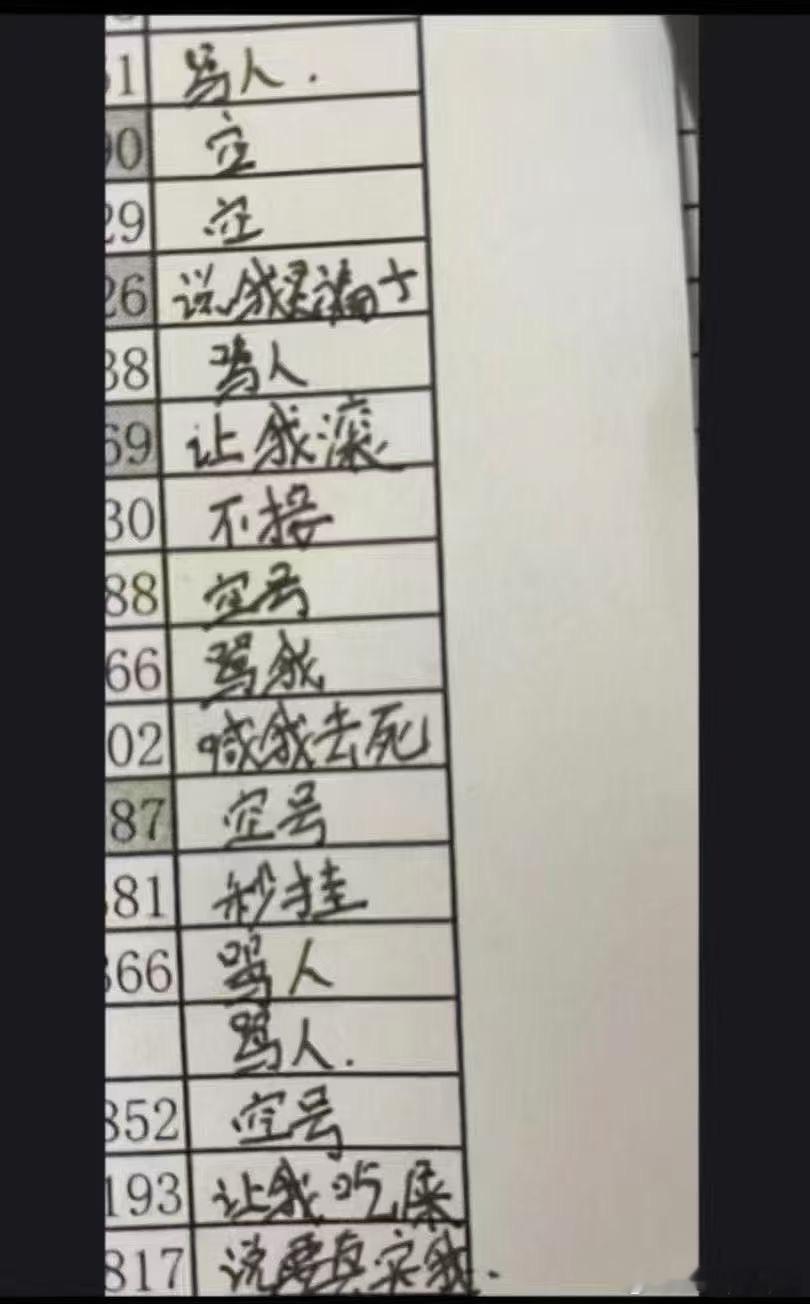 51 骂人.
90 空
29 空
26 说我是骗子
38 骂人
69 让我滚
30 不接
88 空号
66 骂我
02 喊我去死
87 空号
81 秒挂
366 骂人
骂人.
352 空号
193 让我吃屎
817 说要真实我.